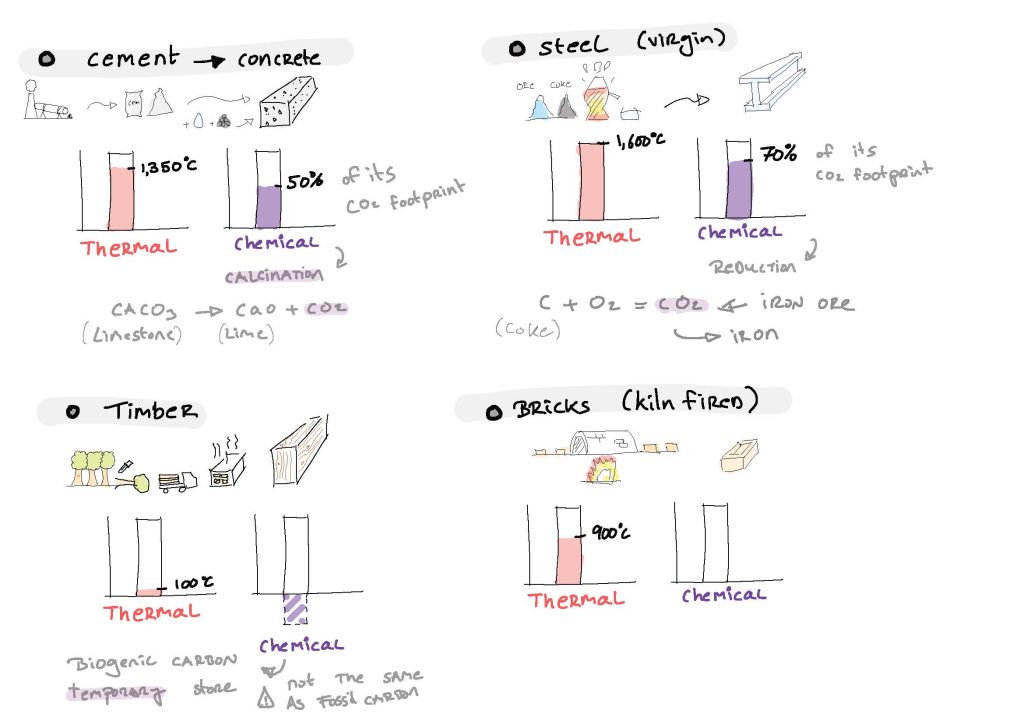 Cement → Concrete
1,350°C
Thermal
50% of its
CO2 footprint
Chemical
Calcination
CaCO3 → CaO + CO2
(Limestone) (Lime)
Steel (Virgin)
Ore Coke
1,600°C
Thermal
70% of its
CO2 footprint
Chemical
Reduction
C + O2 = CO2 ← Iron ore
(Coke) → Iron
Timber
100°C
Thermal
Chemical
Biogenic Carbon
temporary store
not the same
as fossil carbon
Bricks (kiln fired)
900°C
Thermal
Chemical